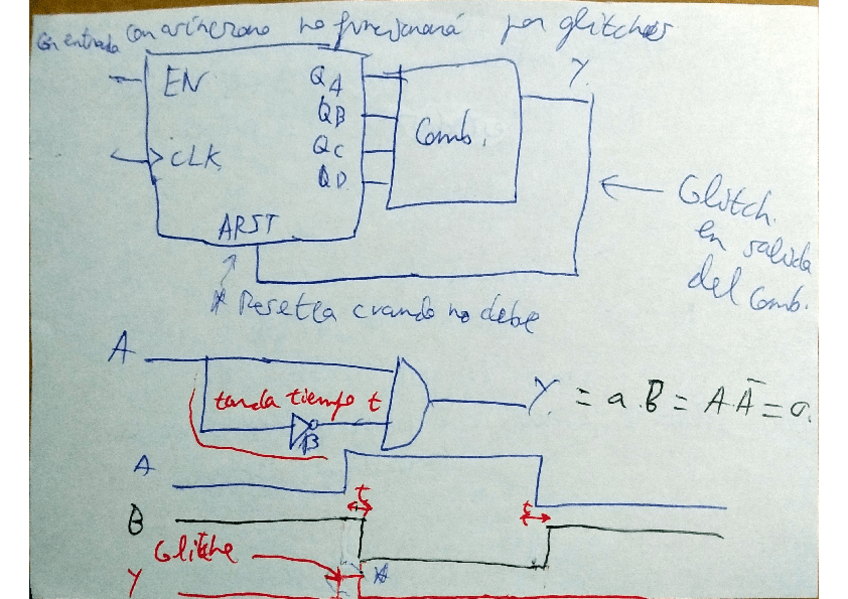 Con entrada Con asíncrono no funcionará por glitches
EN QA
QB
CLK QC
QD
ARST
Comb.
Y
Glitch.
en salida
del Comb.
* Resetea cuando no debe
A
tarda tiempo t
B
Y = a.B = A.Ā = 0.
A
t t
B
Glitche
*
Y